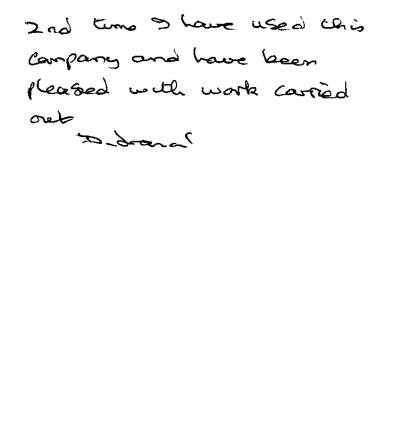 2nd time I have used this
company and have been
pleased with work carried
out